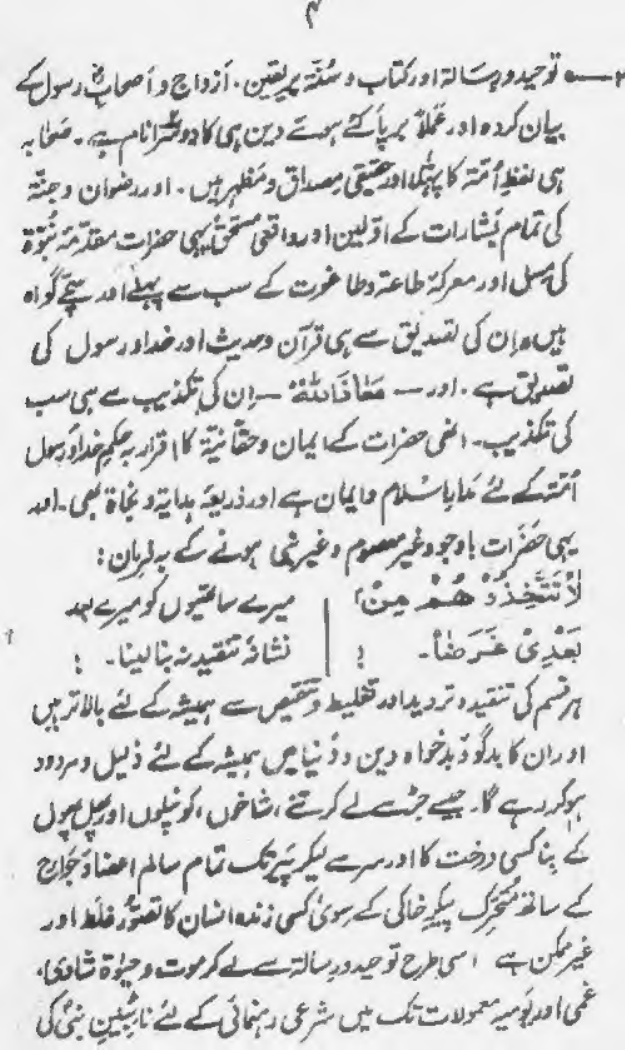 ۴
۲— توحید و رسالۃ اور کتاب و سُنّۃ پر یقین۔ اَزواج و اَصحابِ رسول کے
بیان کردہ اور عَملاً برپا کئے ہوئے دین ہی کا دوسرا نام ہے۔ صَحابہ
ہی لفظِ اُمّۃ کا پہلا اور حقیقی مِصداق و مَظہر ہیں۔ اور رضوان و جنّۃ
کی تمام بَشارات کے اوّلین اور واقعی مستحق یہی حضرات مقدّمۂ نُبوّۃ
کی اور معرکۂ طاعۃ و طاغوت کے سب سے پہلے اور سچّے گواہ
ہیں۔ اِن کی تصدیق سے ہی قرآن و حدیث اور خدا و رسول کی
تصدیق ہے۔ اور — مَعَاذَاللہْ — اِن کی تکذیب سے ہی سب
کی تکذیب۔ انھی حضرات کے ایمان و حقّانیّۃ کا اقرار بہ حکمِ خدا و رسول
اُمّتہ کے لئے مَدارِ اسْلام و ایمان ہے اور ذریعۂ ہدایۃ و نجاۃ بھی۔ اور
یہی حَضَرات باوجود غیر معصوم و غیر نبی ہونے کے بہ فرمان:
لَا تَتَّخِذُوْ هُمْ مِنْ، | میرے ساتھیوں کو میرے بعد
بَعْدِیْ غَرَضاً۔ ؛ | نشانۂ تنقید نہ بنا لینا۔ ؛
ہر قسم کی تنقید و تردید اور تغلیط و تنقیص سے ہمیشہ کے لئے بالاتر ہیں
اور ان کا بدگو و بدخواہ دین و دُنیا میں ہمیشہ کے لئے ذلیل و مردود
ہوکر رہے گا۔ جیسے جڑ سے لے کر تنے، شاخوں، کونپلوں اور پھل پھول
کے بِنا کسی درخت کا اور سر سے لیکر پَیر تک تمام سالم اعضاء و جَوارح
کے ساتھ مُتحرِّک پیکرِ خاکی کے سِویٰ کسی زندہ انسان کا تصوُّر غلَط اور
غیر ممکن ہے اسی طرح توحید و رسالۃ سے لے کر موت و حیٰوۃ شادی،
غمی اور یَومیہ معمولات تک میں شرعی رہنمائی کے لئے نبیؐ کی